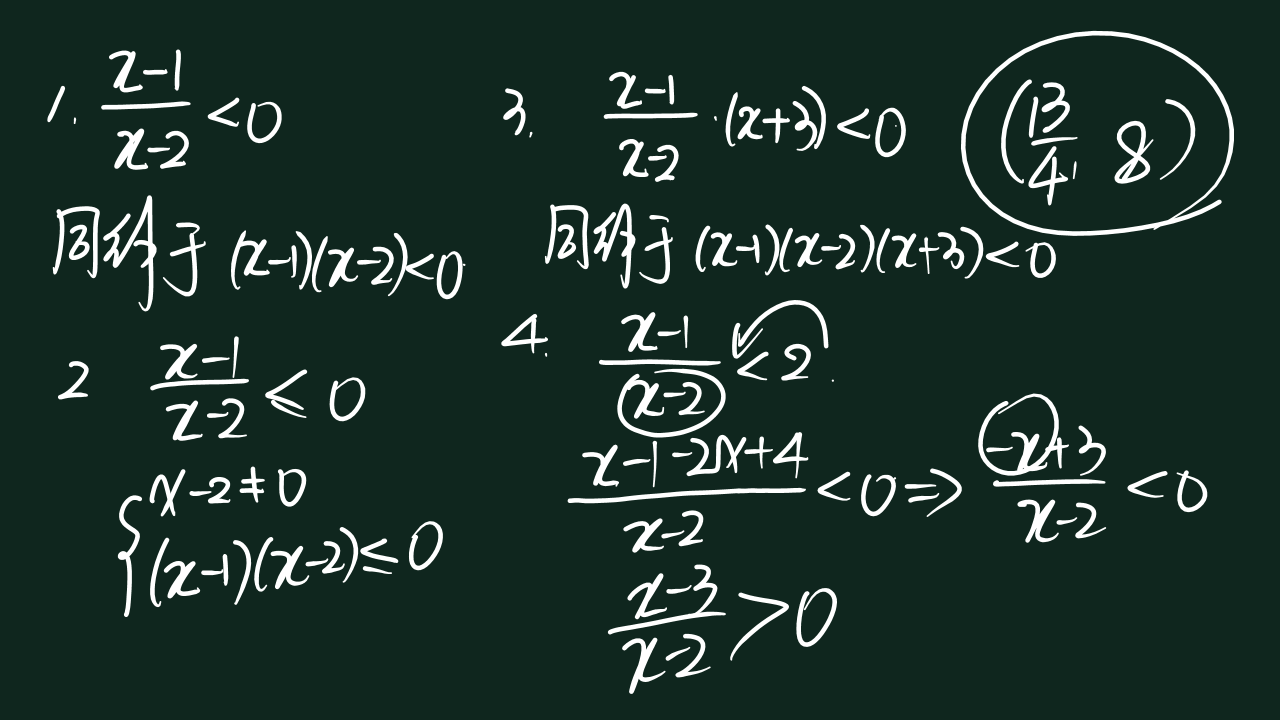 1. \frac{x-1}{x-2}<0
同解于 (x-1)(x-2)<0
2 \frac{x-1}{x-2}≤0
{x-2≠0
(x-1)(x-2)≤0
3. \frac{x-1}{x-2}·(x+3)<0
同解于 (x-1)(x-2)(x+3)<0
4. \frac{x-1}{x-2}<2
\frac{x-1-2x+4}{x-2}<0⇒\frac{-x+3}{x-2}<0
\frac{x-3}{x-2}>0
(\frac{13}{4}, 8)